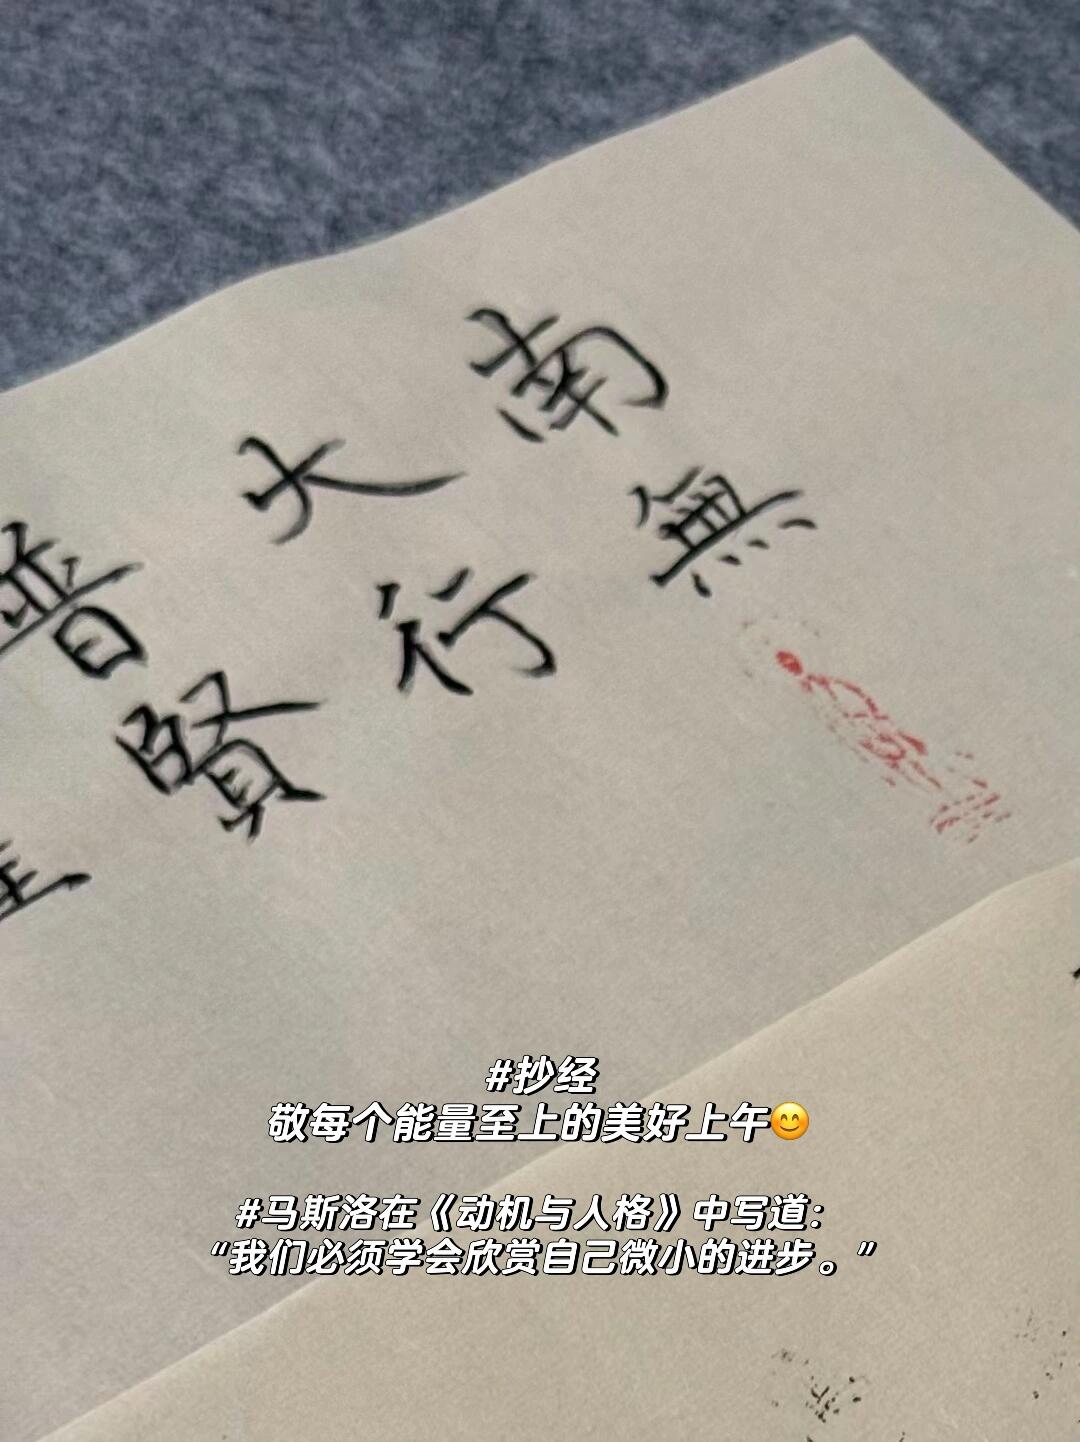 南無
大行
普賢
#抄经
敬每个能量至上的美好上午😊
#马斯洛在《动机与人格》中写道：
“我们必须学会欣赏自己微小的进步。”